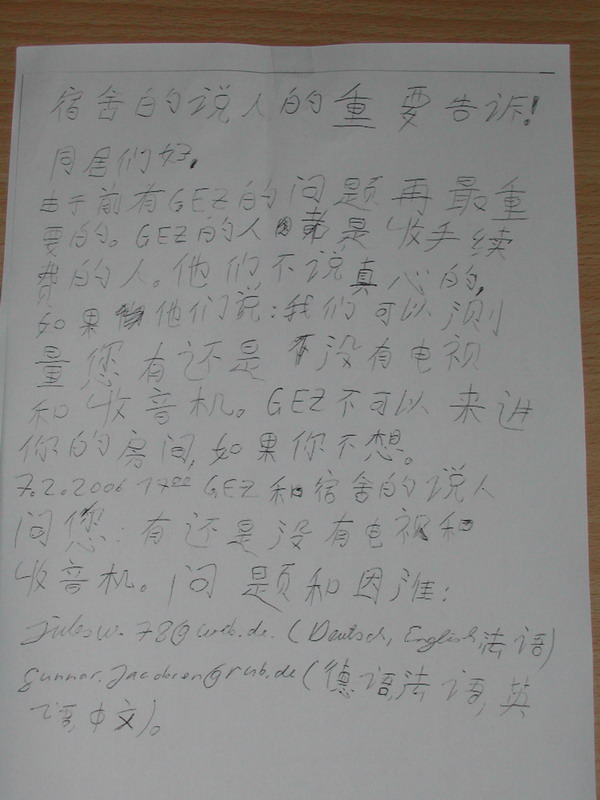 宿舍的说人的重要告诉!
同居们好,
由于前有GEZ的问题再最重
要的。GEZ的人是收手续
费的人。他们不说真心的,
如果他们说:我们可以测
量您有还是没有电视
和收音机。GEZ不可以来进
你的房间,如果你不想。
7.2.2006 17⁰⁰ GEZ和宿舍的说人
问您:有还是没有电视和
收音机。问题和因淮:
julesw.78@web.de. (Deutsch, English, 法语)
gunnar.jacobsen@rub.de (德语,法语,英
语,中文)。